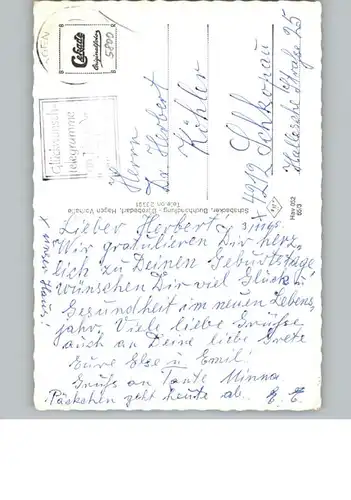 Cekade
Originalfoto
5800
Glückwunsch-
telegramme
Herrn
Dr. Herbert
Köhler
4212 Schkopau
Hallesche Straße 25
Buchhandlung - Bürobedarf, Hagen, Vorhalle
Telefon 23391
Hav 602
65/3
x unser Haus!
Lieber Herbert,
Wir gratulieren Dir herz,
lich zu Deinen Geburtstage
wünschen Dir viel Glück u.
Gesundheit im neuen Lebens,
jahr. Viele liebe Grüße
auch an Deine liebe Grete
Eure Else u Emil!
Gruß an Tante Minna
Päckchen geht heute ab.